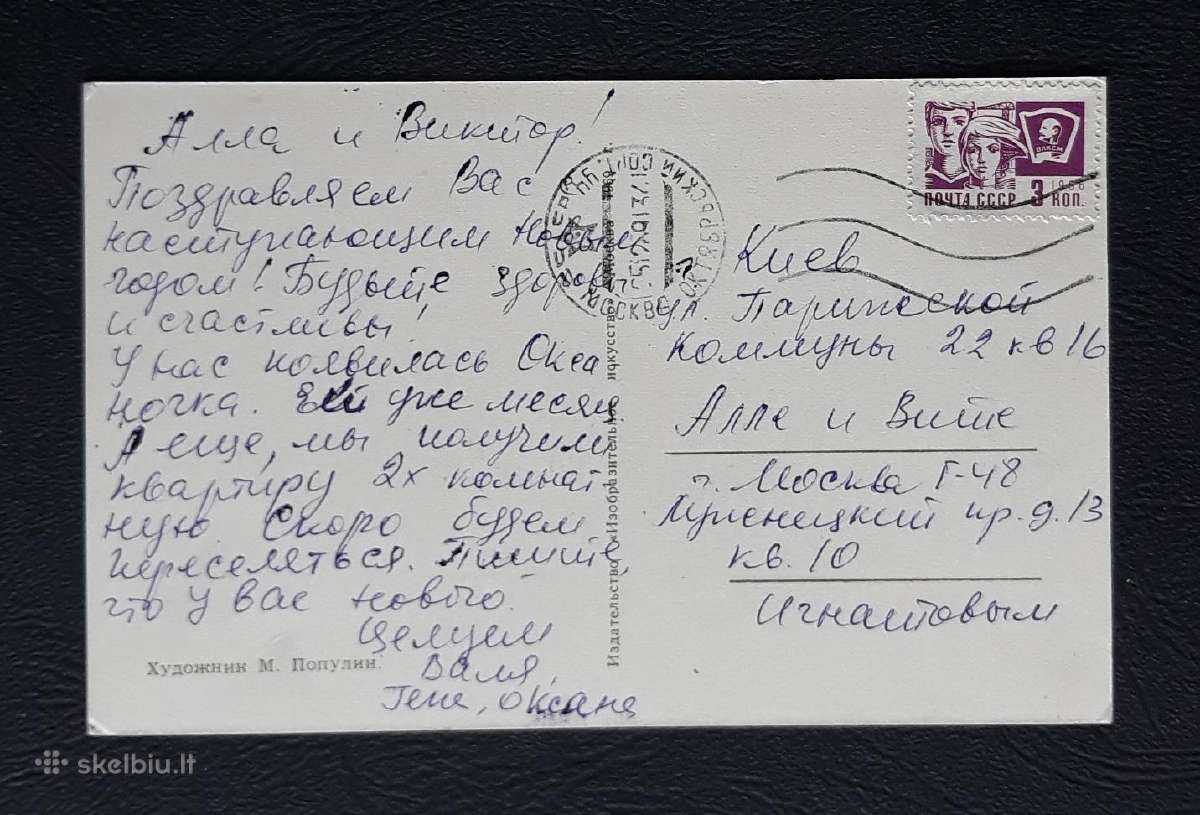 Алла и Виктор!
Поздравляем Вас
наступающим Новым
годом! Будьте здоровы
и счастливы!
У нас появилась Окса
ночка. Ей уже месяц
А еще, мы получим
квартиру 2х комнат
ную. Скоро будем
переселяться. Пишите,
что у вас нового.
Целуем
Валя,
Гена, Оксана
Художник М. Популин.
Издательство «Изобразительное искусство»
МОСКВА
ВЛКСМ
1966
ПОЧТА СССР 3 КОП.
Киев
ул. Парижской
Коммуны 22 кв 16
Алле и Вите
г. Москва Г-48
пр. д. 13
кв. 10
Игнатовым
skelbiu.lt